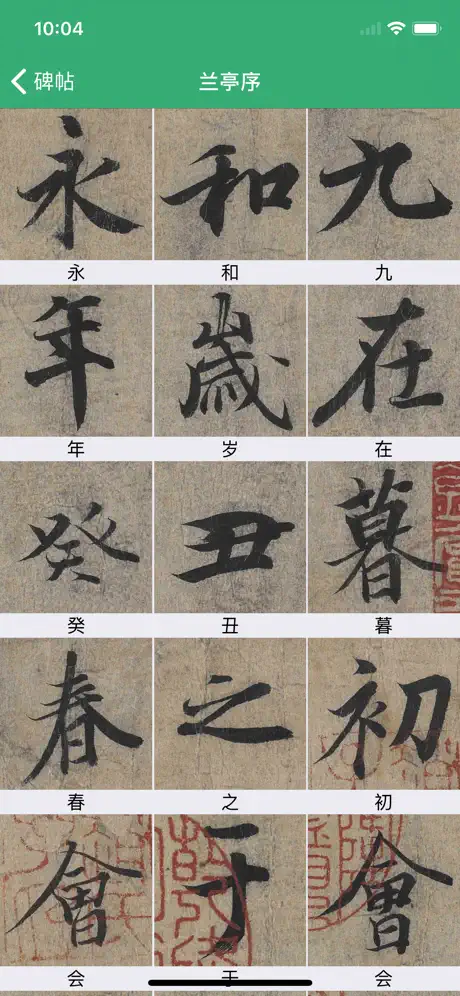 10:04
碑帖
兰亭序
永 和 九
永 和 九
年 歲 在
年 岁 在
癸 丑 暮
癸 丑 暮
春 之 初
春 之 初
會 于 會
会 于 会